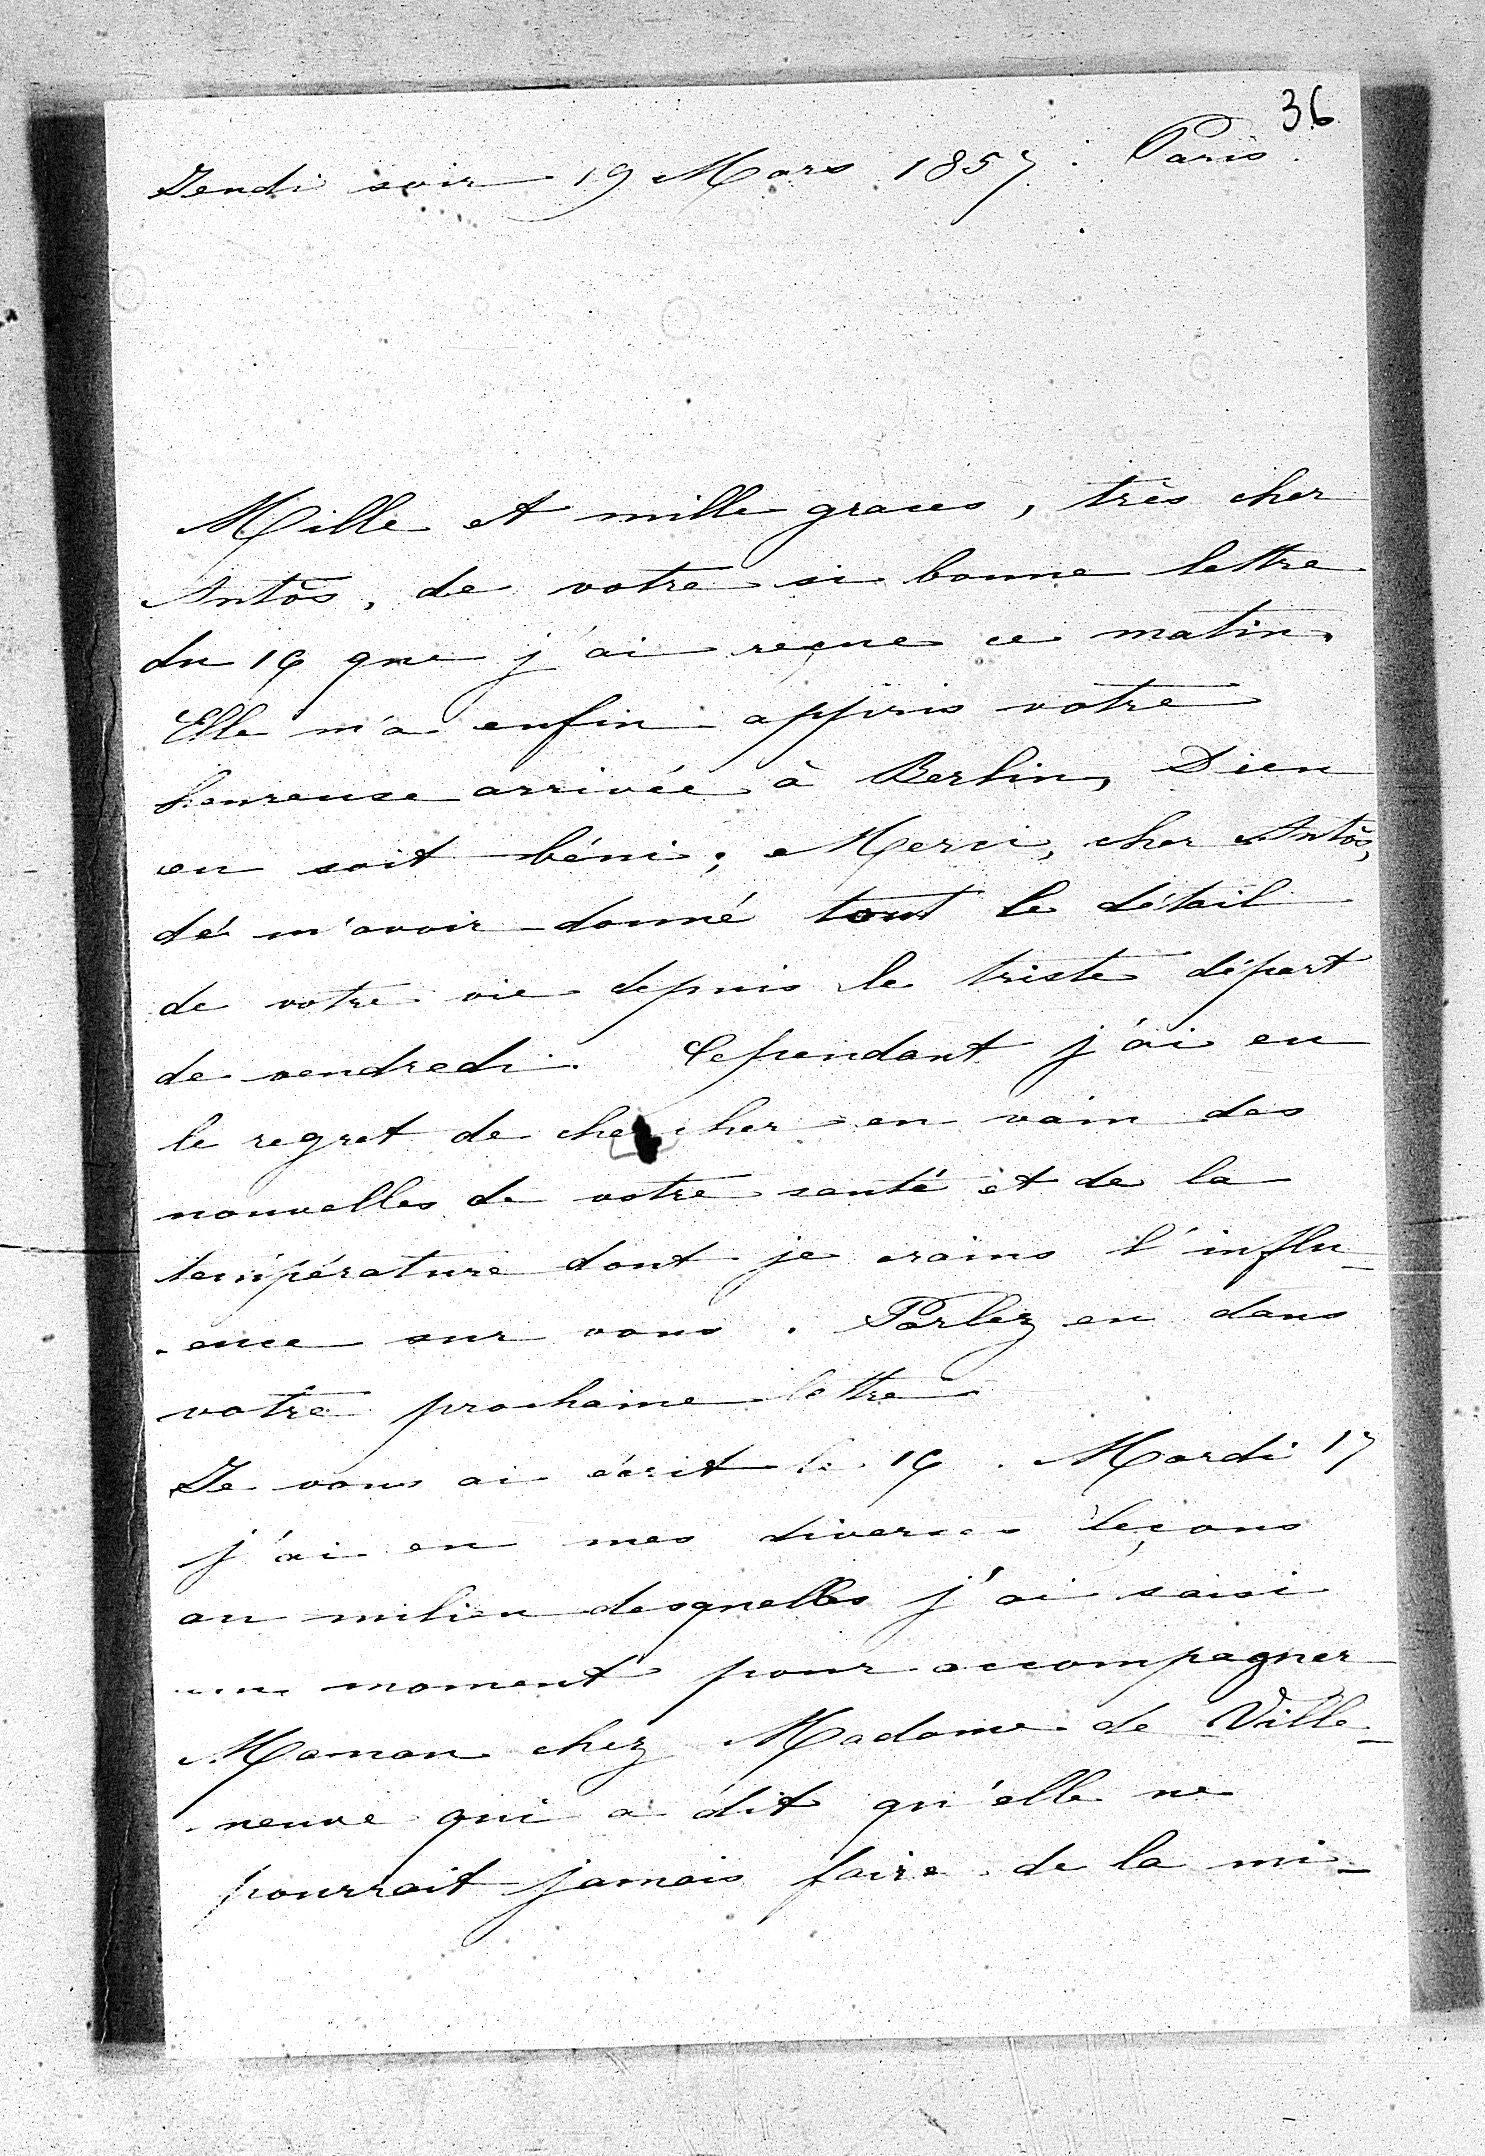 36
Jeudi soir 19 Mars 1857. Paris.
Mille et mille graces, très cher
Antoš, de votre si bonne lettre
du 16 que j'ai reçue ce matin.
Elle m'a enfin appris votre
heureuse arrivée à Berlin, Dieu
en soit béni; Merci, cher Antoš,
de m'avoir donné tout le détail
de votre vie depuis le triste départ
de vendredi. Cependant j'ai eu
le regret de chercher en vain des
nouvelles de votre santé et de la
température dont je crains l'influ-
-ence sur vous. Parlez en dans
votre prochaine lettre
Je vous ai écrit le 16. Mardi 17
j'ai eu mes diverses leçons
au milieu desquelles j'ai saisi
un moment pour accompagner
Maman chez Madame de Ville-
-neuve qui a dit qu'elle ne
pourrait jamais faire de la mi-